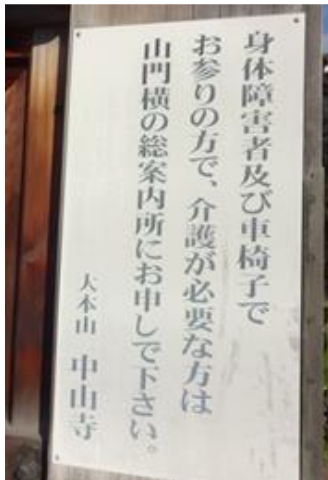 身体障害者及び車椅子で
お参りの方で、介護が必要な方は
山門横の総案内所にお申しで下さい。
大本山 中山寺